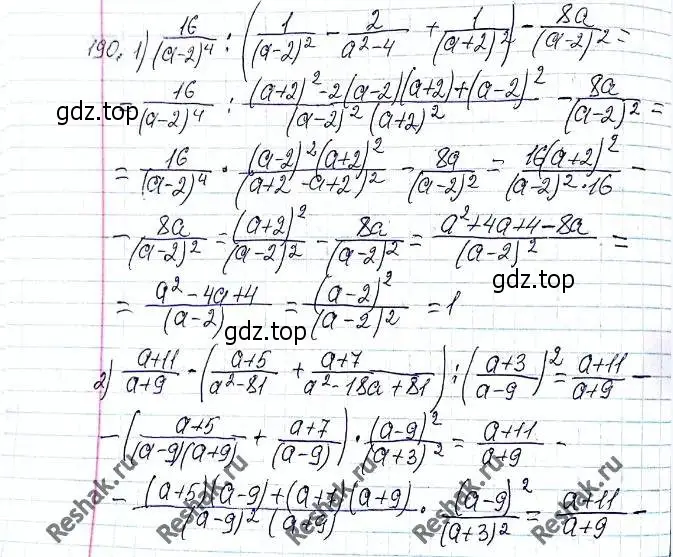 190. 1) \frac{16}{(a-2)^4} : \left( \frac{1}{(a-2)^2} - \frac{2}{a^2-4} + \frac{1}{(a+2)^2} \right) - \frac{8a}{(a-2)^2} =
= \frac{16}{(a-2)^4} : \frac{(a+2)^2-2(a-2)(a+2)+(a-2)^2}{(a-2)^2(a+2)^2} - \frac{8a}{(a-2)^2} =
gdz.top
gdz.top
= \frac{16}{(a-2)^4} \cdot \frac{(a-2)^2(a+2)^2}{(a+2-a+2)^2} - \frac{8a}{(a-2)^2} = \frac{16(a+2)^2}{(a-2)^2 \cdot 16} -
- \frac{8a}{(a-2)^2} = \frac{(a+2)^2}{(a-2)^2} - \frac{8a}{(a-2)^2} = \frac{a^2+4a+4-8a}{(a-2)^2} =
gdz.top
= \frac{a^2-4a+4}{(a-2)} = \frac{(a-2)^2}{(a-2)^2} = 1
gdz.top
2) \frac{a+11}{a+9} - \left( \frac{a+5}{a^2-81} + \frac{a+7}{a^2-18a+81} \right) : \left( \frac{a+3}{a-9} \right)^2 = \frac{a+11}{a+9} -
- \left( \frac{a+5}{(a-9)(a+9)} + \frac{a+7}{(a-9)} \right) \cdot \frac{(a-9)^2}{(a+3)^2} = \frac{a+11}{a+9} -
- \frac{(a+5)(a-9)+(a+7)(a+9)}{(a-9)^2(a+9)} \cdot \frac{(a-9)^2}{(a+3)^2} = \frac{a+11}{a+9} -
Reshak.ru
Reshak.ru
Reshak.ru
Reshak.ru